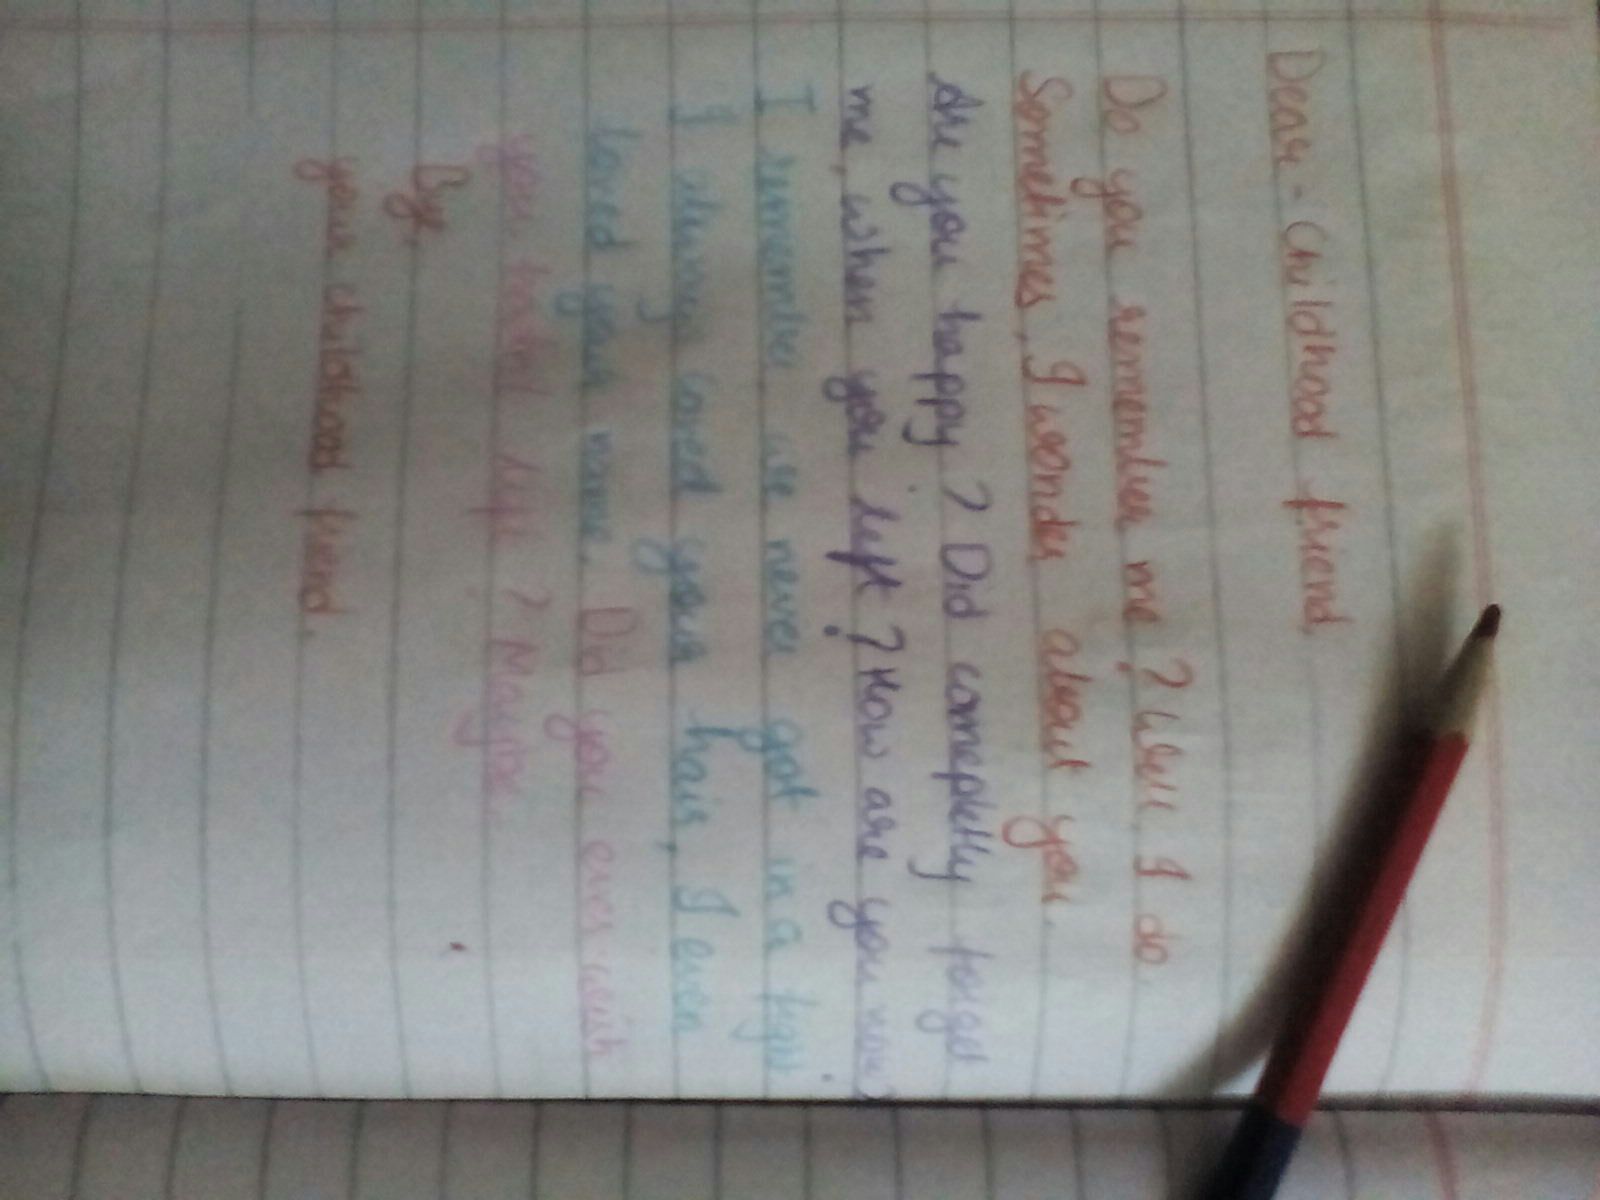 Dear - Childhood friend,
Do you remember me? Well I do.
Sometimes, I wonder about you.
Are you happy? Did comepletly forget
me, when you left? How are you now?
I remember we never got in a fight.
I always loved your hair, I even
loved your name. Did you ever wish
you hated life? Maybe.
Bye,
your childhood friend.